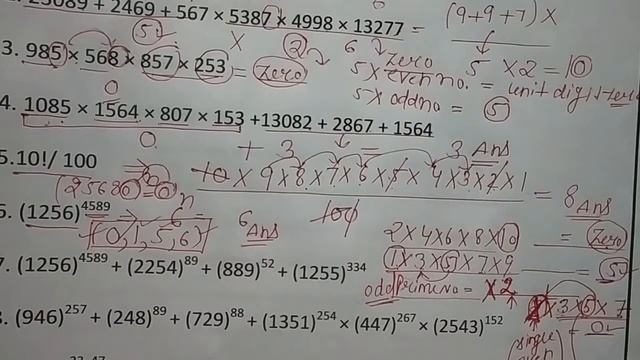 25089 + 2469 + 567 × 5387 × 4998 × 13277 =
(9+9+7) ×
5 × 2 = 10
3. 985 × 568 × 857 × 253 = Zero
5 × even no. = Zero unit digit
5 × odd no = 5
0
4. 1085 × 1564 × 807 × 153 + 13082 + 2867 + 1564
0 + 3
3 Ans
5. 10! / 100
10 × 9 × 8 × 7 × 6 × 5 × 4 × 3 × 2 × 1
100
= 8 Ans
6. (1256)^4589
6 Ans
(0, 1, 5, 6)^n
2 × 4 × 6 × 8 × 10 = Zero
1 × 3 × 5 × 7 × 9 = 5
7. (1256)^4589 + (2254)^89 + (889)^52 + (1255)^334
odd prime no = × 2
8. (946)^257 + (248)^89 + (729)^88 + (1351)^254 × (447)^267 × (2543)^152
× 3 × 5 × 7
single